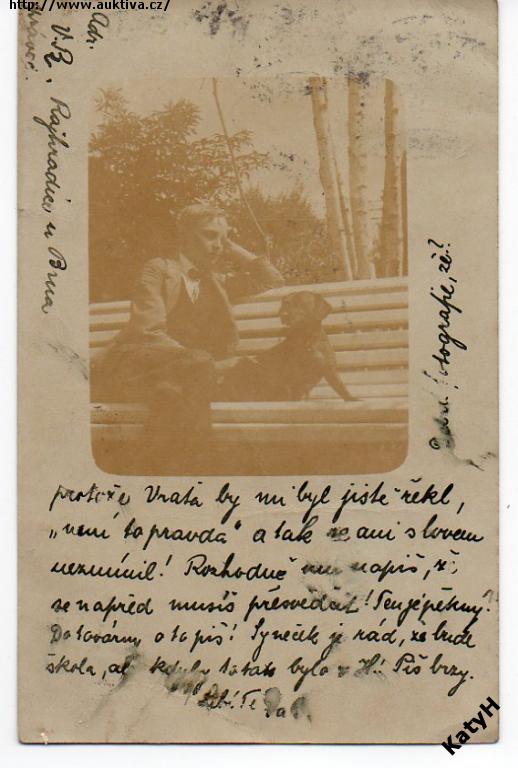 http://www.auktiva.cz/
Adr.
V. R. Rajhradice u Brna
Dobrá fotografie, že?
protože Vrata by mi byl jistě řekl,
„není to pravda" a tak se ani slovem
nezmínil! Rozhodně mu napiš, že
se napřed musíš přesvědčit! Ten je pěkný?
Do továrny o to piš! Syneček je rád, že bude
škola, ale kdyby to tak bylo v H! Piš brzy.
líbá Tě
KatyH